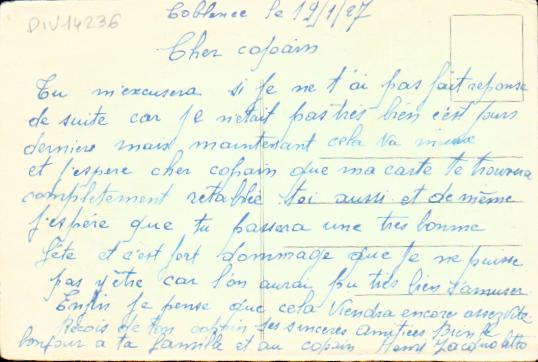 DIV14236
Coblence le 19/1/27
Cher copain
Tu m'excusera si je ne t'ai pas fait reponse
de suite car je n'etait pas très bien c'est jours
derniere mais maintenant cela va mieux
et j'espere cher copain que ma carte te trouvera
completement retablie toi aussi et de même
j'espére que tu passera une tres bonne
fête et c'est fort dommage que je ne puisse
pas y être car l'on aurai pu très bien s'amuser
Enfin je pense que cela viendra encore assez vite
Reçois de ton copain ses sinceres amitiées bien le
bonjour a ta famille et au copain Henri